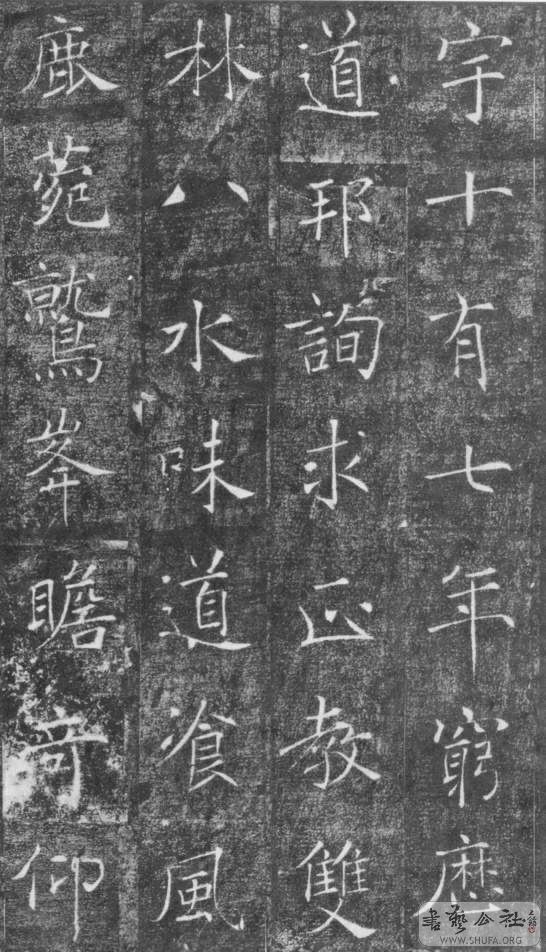 宇十有七年窮歷
道邦詢求正教雙
林八水味道飡風
鹿菀鷲峯瞻奇仰
書藝公社
WWW.SHUFA.ORG